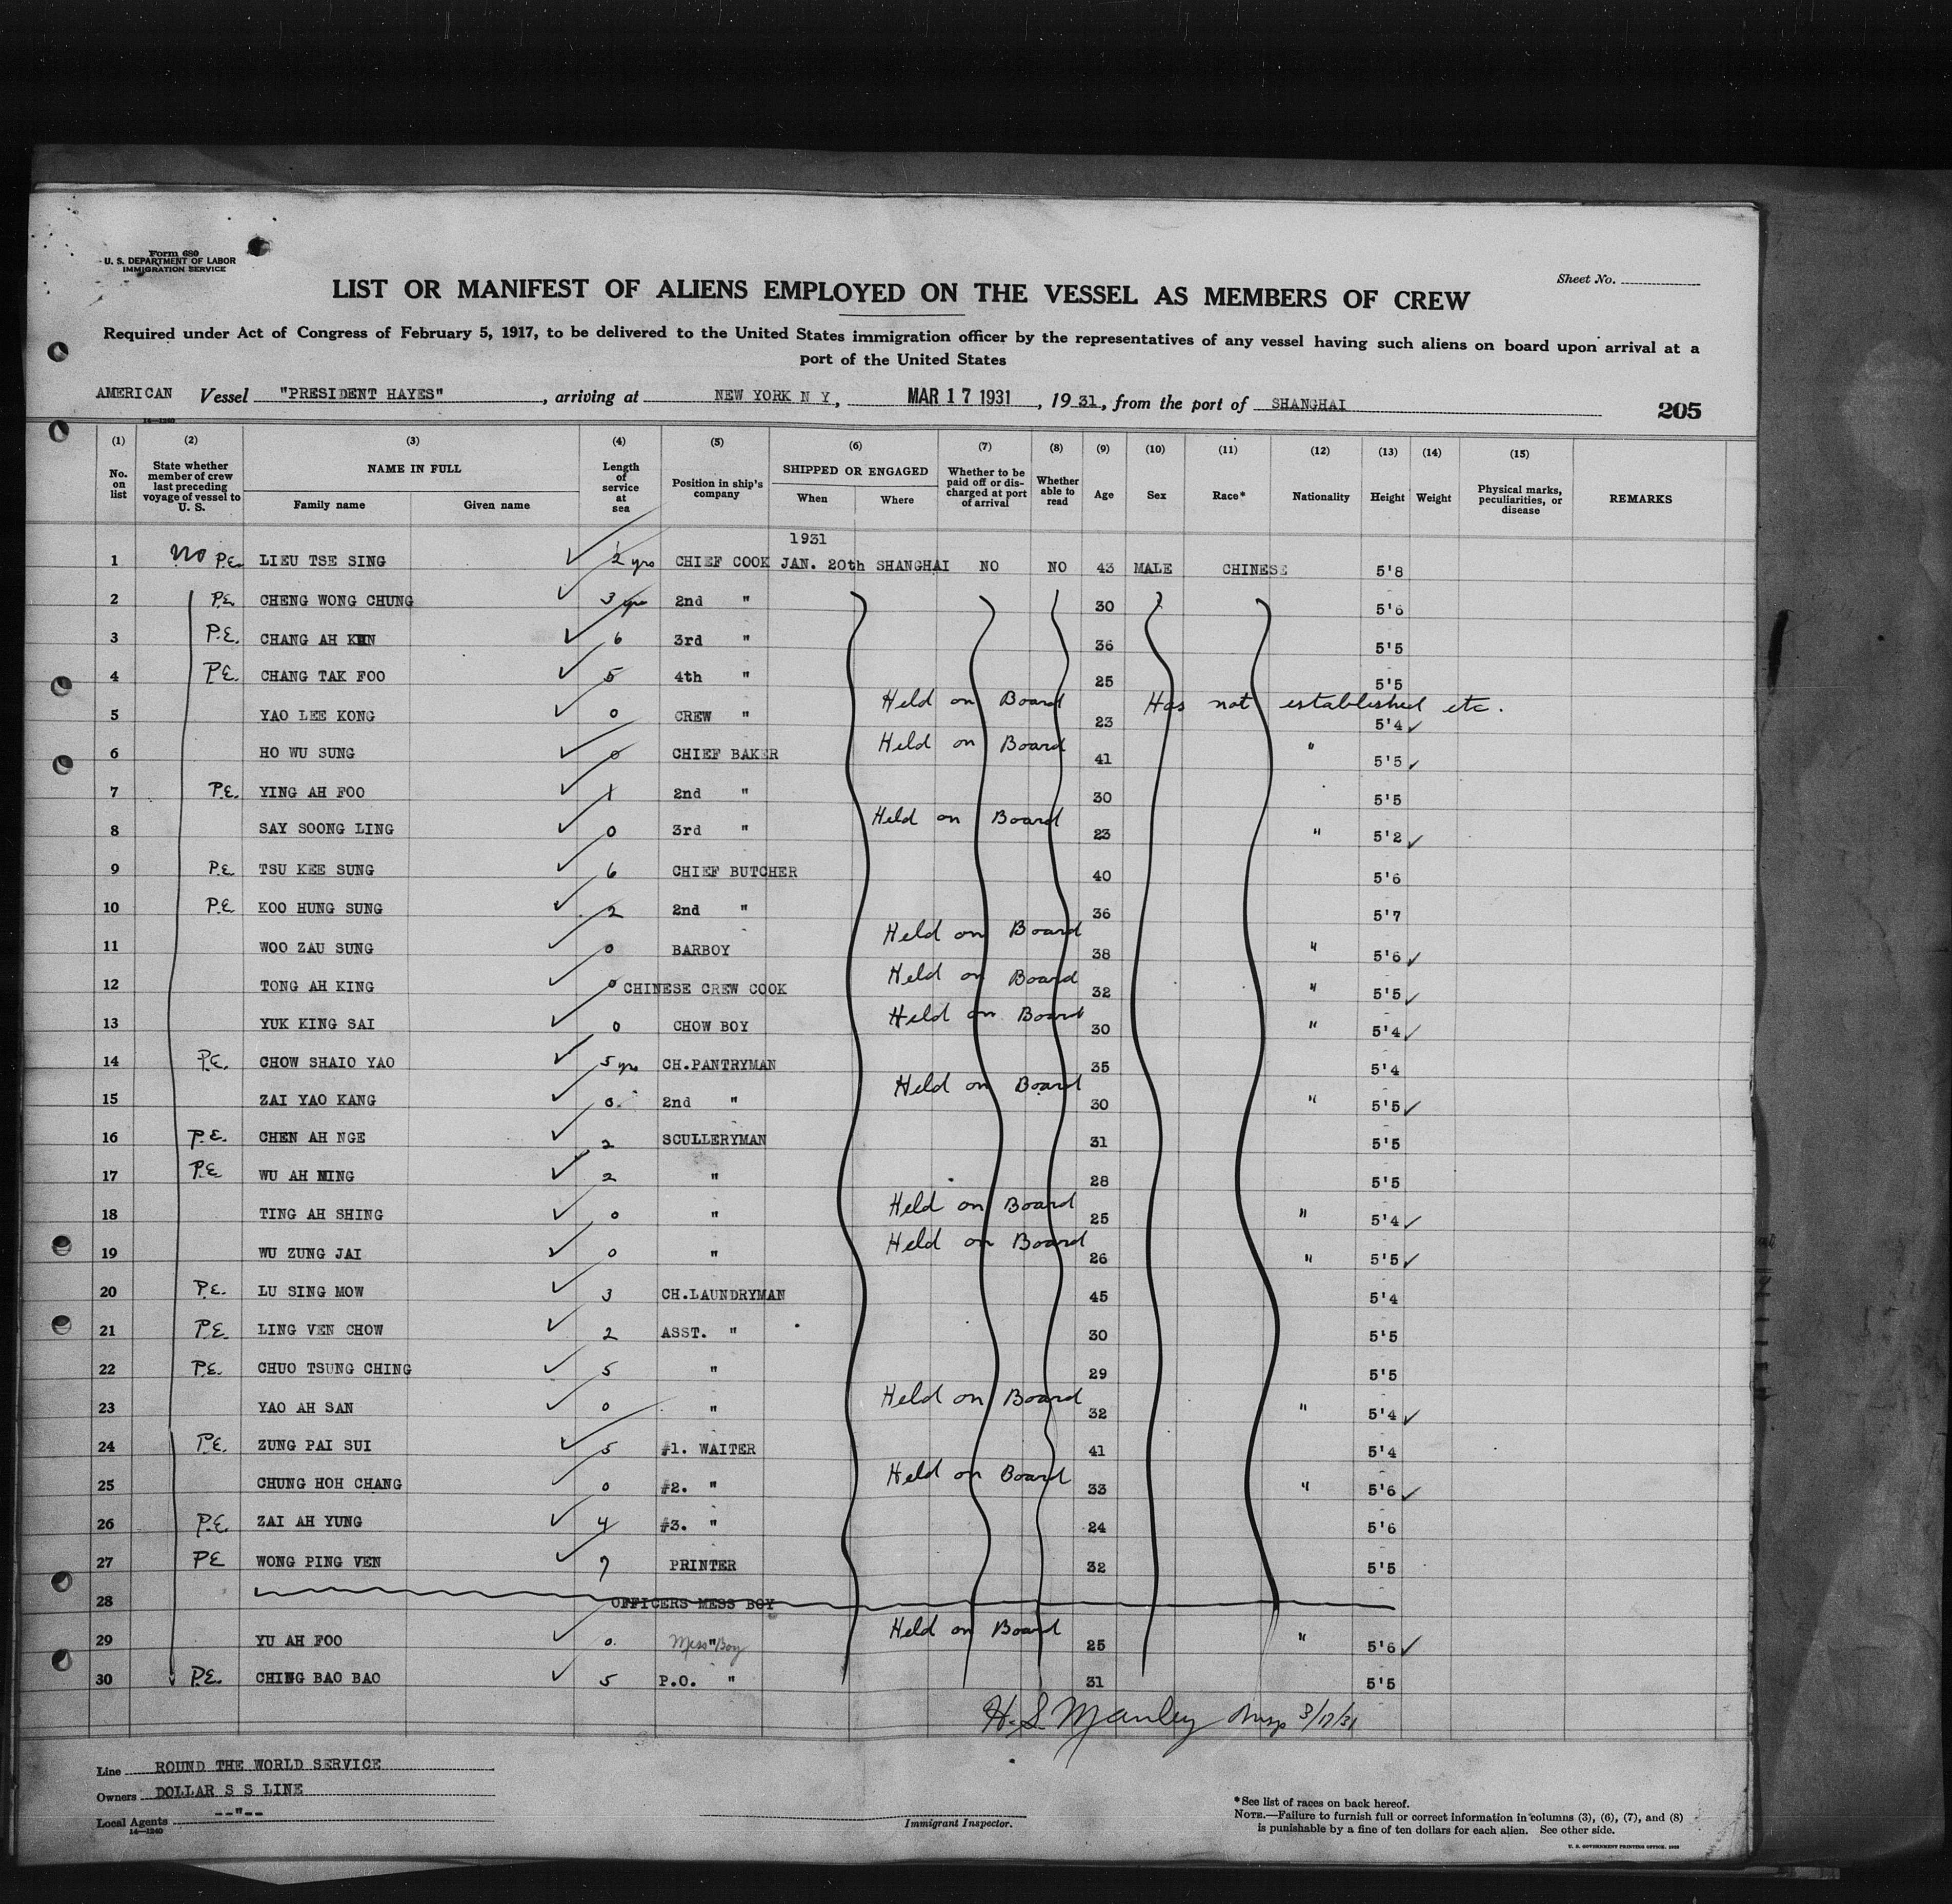 Form 680
U. S. DEPARTMENT OF LABOR
IMMIGRATION SERVICE
Sheet No.
LIST OR MANIFEST OF ALIENS EMPLOYED ON THE VESSEL AS MEMBERS OF CREW
Required under Act of Congress of February 5, 1917, to be delivered to the United States immigration officer by the representatives of any vessel having such aliens on board upon arrival at a
port of the United States
AMERICAN Vessel "PRESIDENT HAYES", arriving at NEW YORK N Y, MAR 17 1931, 1931, from the port of SHANGHAI 205
14—1240
(1) (2) (3) (4) (5) (6) (7) (8) (9) (10) (11) (12) (13) (14) (15)
No. on list State whether member of crew last preceding voyage of vessel to U. S. NAME IN FULL Family name Given name Length of service at sea Position in ship's company SHIPPED OR ENGAGED When Where Whether to be paid off or discharged at port of arrival Whether able to read Age Sex Race* Nationality Height Weight Physical marks, peculiarities, or disease REMARKS
1931
1 No P.E. LIEU TSE SING 2 yrs CHIEF COOK JAN. 20th SHANGHAI NO NO 43 MALE CHINESE 5'8
2 P.E. CHENG WONG CHUNG 3 yrs 2nd " 30 5'6
3 P.E. CHANG AH KUN 6 3rd " 36 5'5
4 P.E. CHANG TAK FOO 5 4th " 25 5'5
5 YAO LEE KONG 0 CREW " Held on Board 23 Has not established etc. 5'4 ✓
6 HO WU SUNG 0 CHIEF BAKER Held on Board 41 " 5'5 ✓
7 P.E. YING AH FOO 1 2nd " 30 5'5
8 SAY SOONG LING 0 3rd " Held on Board 23 " 5'2 ✓
9 P.E. TSU KEE SUNG 6 CHIEF BUTCHER 40 5'6
10 P.E. KOO HUNG SUNG 2 2nd " 36 5'7
11 WOO ZAU SUNG 0 BARBOY Held on Board 38 " 5'6 ✓
12 TONG AH KING 0 CHINESE CREW COOK Held on Board 32 " 5'5 ✓
13 YUK KING SAI 0 CHOW BOY Held on Board 30 " 5'4 ✓
14 P.E. CHOW SHAIO YAO 5 yrs CH.PANTRYMAN 35 5'4
15 ZAI YAO KANG 0. 2nd " Held on Board 30 " 5'5 ✓
16 P.E. CHEN AH NGE 2 SCULLERYMAN 31 5'5
17 P.E. WU AH MING 2 " 28 5'5
18 TING AH SHING 0 " Held on Board 25 " 5'4 ✓
19 WU ZUNG JAI 0 " Held on Board 26 " 5'5 ✓
20 P.E. LU SING MOW 3 CH.LAUNDRYMAN 45 5'4
21 P.E. LING VEN CHOW 2 ASST. " 30 5'5
22 P.E. CHUO TSUNG CHING 5 " 29 5'5
23 YAO AH SAN 0 " Held on Board 32 " 5'4 ✓
24 P.E. ZUNG PAI SUI 5 #1. WAITER 41 5'4
25 CHUNG HOH CHANG 0 #2. " Held on Board 33 " 5'6 ✓
26 P.E. ZAI AH YUNG 4 #3. " 24 5'6
27 P.E. WONG PING VEN 7 PRINTER 32 5'5
28 OFFICERS MESS BOY
29 YU AH FOO 0. Mess " Boy Held on Board 25 " 5'6 ✓
30 P.E. CHING BAO BAO 5 P.O. " 31 5'5
H. S. Manley Insp 3/17/31
Line ROUND THE WORLD SERVICE
Owners DOLLAR S S LINE
Local Agents --"--
14—1240
Immigrant Inspector.
*See list of races on back hereof.
NOTE.—Failure to furnish full or correct information in columns (3), (6), (7), and (8)
is punishable by a fine of ten dollars for each alien. See other side.
U. S. GOVERNMENT PRINTING OFFICE: 1929